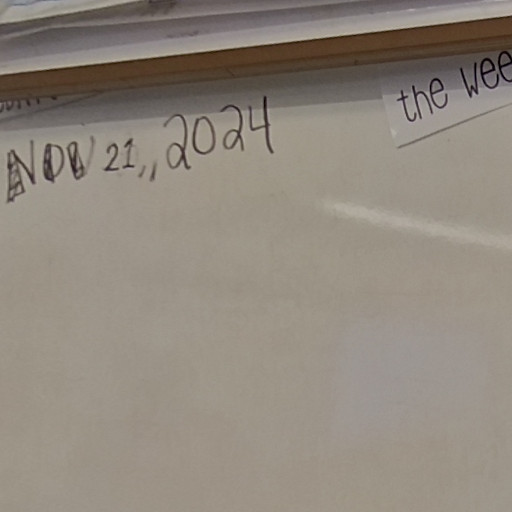 NOV 21,, 2024
the wee